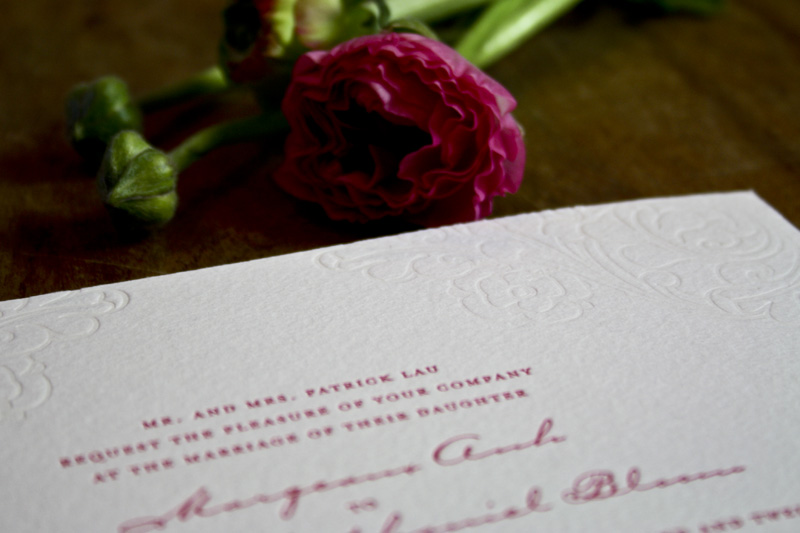 MR. AND MRS. PATRICK LAU
REQUEST THE PLEASURE OF YOUR COMPANY
AT THE MARRIAGE OF THEIR DAUGHTER
Margeaux Anh
TO
Bloom
AND